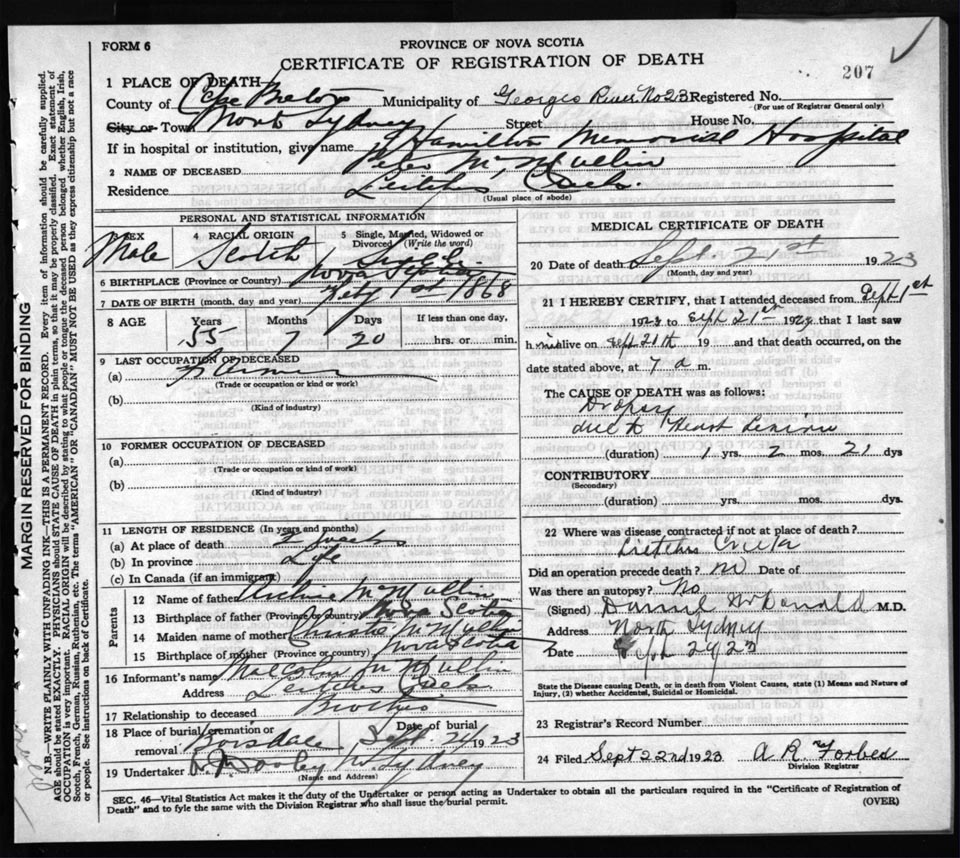 FORM 6
PROVINCE OF NOVA SCOTIA
CERTIFICATE OF REGISTRATION OF DEATH
207
1 PLACE OF DEATH—
County of Cape Breton Municipality of Georges River No 23 Registered No.
(For use of Registrar General only)
City or Town North Sydney Street House No.
If in hospital or institution, give name Hamilton Memorial Hospital
2 NAME OF DECEASED Peter McMullin
Residence Leitches Creek.
(Usual place of abode)
PERSONAL AND STATISTICAL INFORMATION
3 SEX Male
4 RACIAL ORIGIN Scotch
5 Single, Married, Widowed or Divorced (Write the word) Single
6 BIRTHPLACE (Province or Country) Nova Scotia
7 DATE OF BIRTH (month, day and year) Feby 1st 1868
8 AGE Years 55 Months 7 Days 20 If less than one day, hrs. or min.
9 LAST OCCUPATION OF DECEASED
(a) Farmer
(Trade or occupation or kind or work)
(b)
(Kind of industry)
10 FORMER OCCUPATION OF DECEASED
(a)
(Trade or occupation or kind or work)
(b)
(Kind of industry)
11 LENGTH OF RESIDENCE (In years and months)
(a) At place of death 2 weeks
(b) In province Life
(c) In Canada (if an immigrant)
Parents
12 Name of father Archie McMullin
13 Birthplace of father (Province or country) Nova Scotia
14 Maiden name of mother Christie McMullin
15 Birthplace of mother (Province or country) Nova Scotia
16 Informant's name Malcolm McMullin
Address Leitches Creek
17 Relationship to deceased Brother
18 Place of burial, cremation or removal Boisdale Date of burial Sept. 24 1923
19 Undertaker Dooley N. Sydney
(Name and Address)
MEDICAL CERTIFICATE OF DEATH
20 Date of death Sept. 21st 1923
(Month, day and year)
21 I HEREBY CERTIFY, that I attended deceased from Sept 1st
1923 to Sept 21st 1923, that I last saw
him alive on Sept 20th 19 and that death occurred, on the
date stated above, at 7 a m.
The CAUSE OF DEATH was as follows:
Dropsy
due to Heart
(duration) 1 yrs. 2 mos. 21 dys
CONTRIBUTORY
(Secondary)
(duration) yrs. mos. dys.
22 Where was disease contracted if not at place of death?
Leitches Creek
Did an operation precede death? No Date of
Was there an autopsy? No
(Signed) Daniel McDonald M.D.
Address North Sydney
Date Sept 22/23
State the Disease causing Death, or in death from Violent Causes, state (1) Means and Nature of
Injury, (2) whether Accidental, Suicidal or Homicidal.
23 Registrar's Record Number
24 Filed Sept 22nd 1923 A R Forbes
Division Registrar
SEC. 46—Vital Statistics Act makes it the duty of the Undertaker or person acting as Undertaker to obtain all the particulars required in the "Certificate of Registration of
Death" and to fyle the same with the Division Registrar who shall issue the burial permit.
(OVER)
MARGIN RESERVED FOR BINDING
N.B.—WRITE PLAINLY WITH UNFADING INK—THIS IS A PERMANENT RECORD. Every item of information should be carefully supplied.
AGE should be stated EXACTLY. PHYSICIANS should STATE CAUSE OF DEATH in plain terms, so that it may be properly classified. Exact statement of
OCCUPATION is very important. RACIAL ORIGIN will be described by stating to what people or tongue the deceased person belonged whether English, Irish,
Scotch, French, German, Russian, Ruthenian, etc. The terms "AMERICAN" or "CANADIAN" MUST NOT BE USED as they express citizenship but not a race
or people. See instructions on back of Certificate.